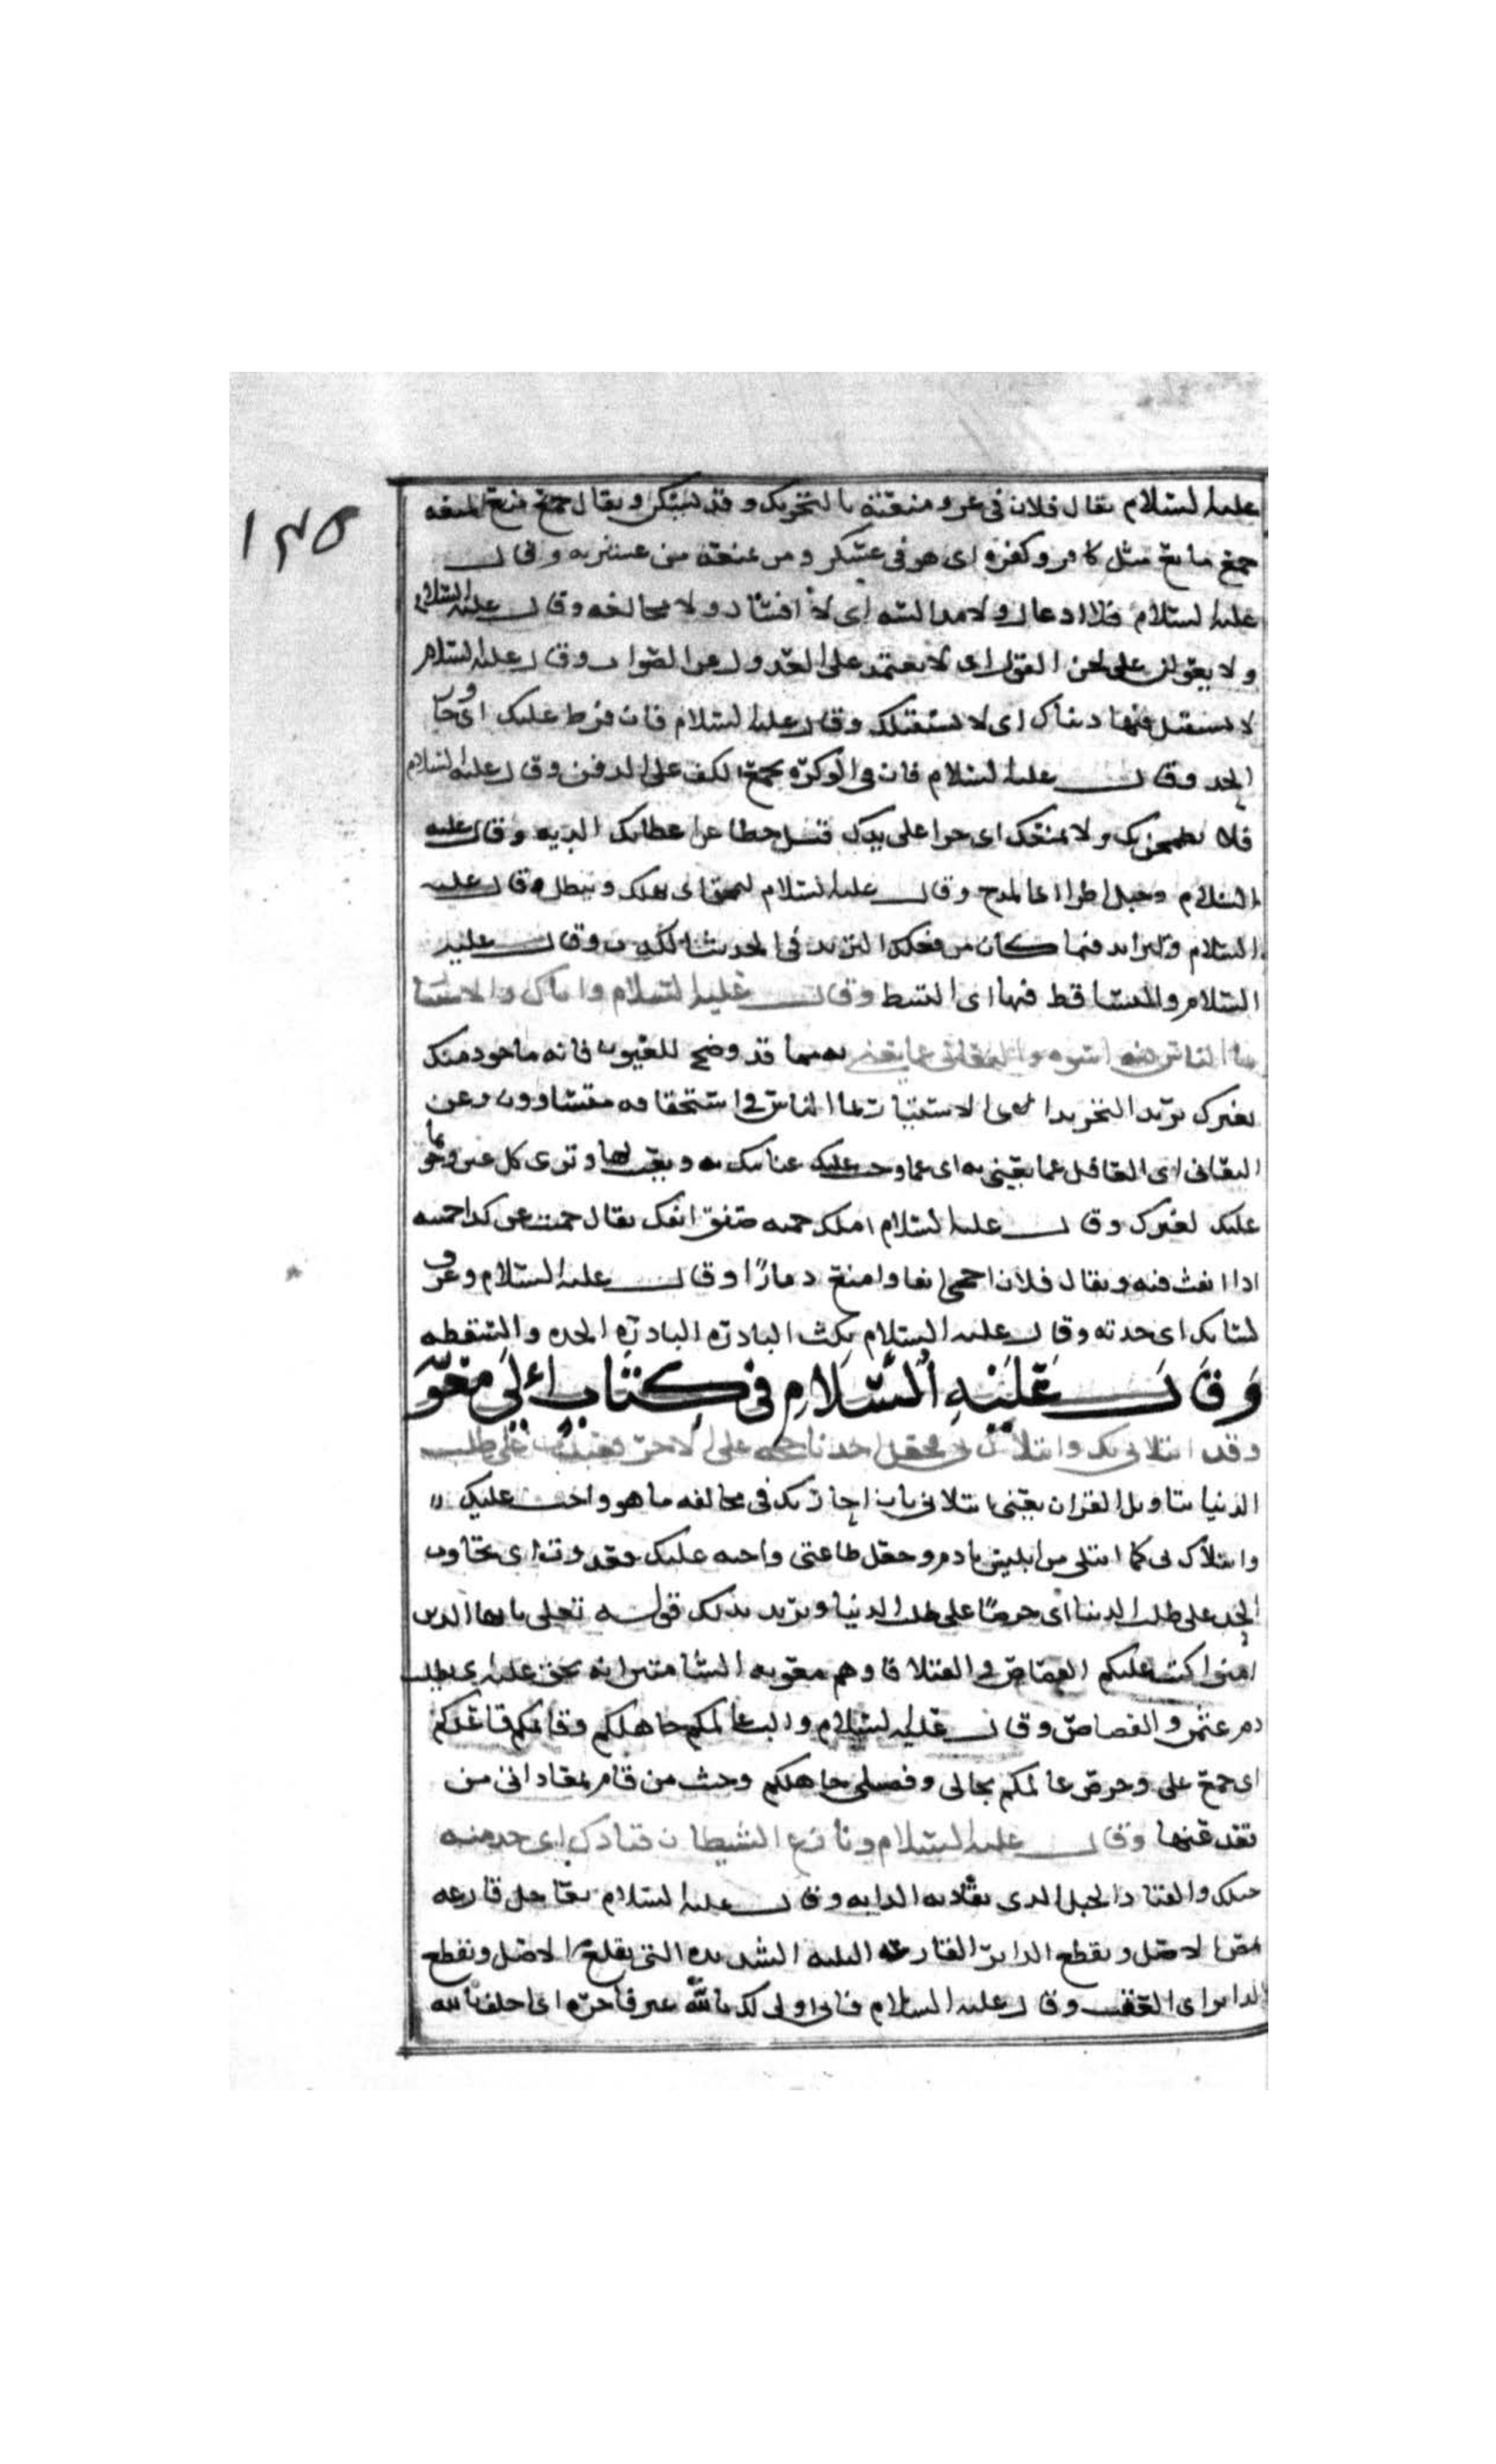 ١٣٥
عليه السلام يقال فلان في عز ومنعته بالتحريك وقد يسكن ويقال جمع منع المنعه
جمع مانع مثل كافر وكفره اى هو فى عسكر ومن عنعه من عشيرته وقال
عليه السلام فلا ادعال ولا مدالسه اى لا افساد ولا مخالفه وقال عليه السلام
ولا يعولن على لحن القول اى لا يعتمد على العدول عن الصواب وقال عليه السلام
لا تستقيل فيها دنياك اى لا تستقيلك وقال عليه السلام فان فرط عليك اى جاوز
الحد وقال عليه السلام فان فى الوكزه بجمع الكف على الدفن وقال عليه السلام
فلا تطمحن بك ولا يمنعك اى جرا على يدك قتل خطا عن اعطائك الديه وقال عليه
السلام وحب الاطرا اعا لمدح وقال عليه السلام ليمحق اى يهلك ويبطل وقال عليه
السلام والتزايد فيما كان من فعلك التزيد فى الحديث الكذب وقال عليه
السلام والتساقط فيها اى التبسط وقال عليه السلام واياك والاستيثا
بما الناس فيه اسوه والتغابى عما يعنى به مما قد وضح للعيون فانه ماخوذ منك
لغيرك يريد التحزيدا الاستيثار بما الناس فى استحقاقه متساوون وعن
التغابى اى التغافل عما يعنى به اى عما وجب عليك عنايتك به وترى كل عين وتحو
عليك لغيرك وقال عليه السلام املك حميه انفك يقال حميت عن كذا حميه
اذا انفت منه ويقال فلان احمى انفا وامنع ذمارًا وقال عليه السلام وغرب
لسانك اى حدته وقال عليه السلام بكف البادره البادره الحده والسقطه
وَقَالَ عَلَيْهِ السَّلَامِ فى كِتَابٍ إِلَى مُعٰوِ
وقد ابتلانى بك وابتلاك بى فجعل احدنا حجه على الاخر فعدوت على طلب
الدنيا بتاويل القران يعنى ابتلانى بان اجازيك فى مخالفه ما هو واجب عليك
وابتلاك بى كما ابتلى من ابليس بادم وجعل طاعتى واجبه عليك فعدوت اى تجاوب
الحد على طلب الدنيا اى حرصًا على طلب الدنيا ويريد بذلك قوله تعلى يايها الذين
امنوا كتب عليكم القصاص فى القتلا فاوهم معويه الشامتين انه يحق عليه يطلب
دم عثمن والقصاص وقال عليه السلام والب عالمكم جاهلكم وقائمكم قاعدكم
اى جمع على وحرض عالمكم بحالى وفضلى جاهلكم وحث من قام لمعاداتى من
تقد عنها وقال عليه السلام ونازع الشيطان قيادك اى خذ منه
حبلك والقياد الحبل الذى يقاد به الدابه وقال عليه السلام بعاجل قارعه
تمس الاصل ويقطع الدابر القارعه البليه الشديده التى يقلع الاصل ويقطع
الدابر اى العقب وقال عليه السلام فانى اولى لك بالله غير فاجره اى احلف بالله